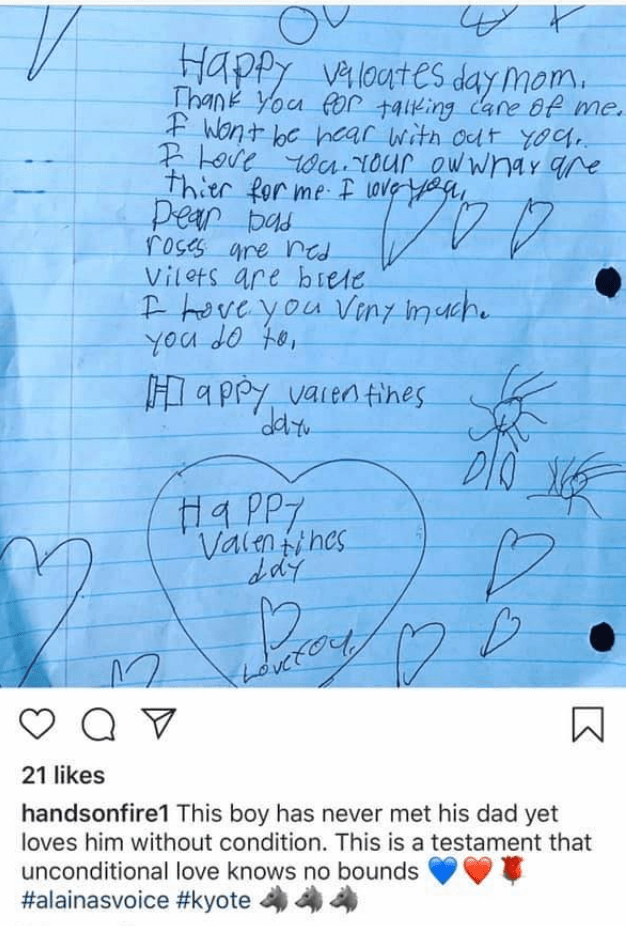 Happy Valoutes day mom.
Thank you for talking care of me.
I Wont be hear with out you.
I Love you. Your owwhay are
thier for me. I love you,
Dear Dad
roses are red
Vilets are blele
I Love you Very much.
you do to,
Happy valentines
day
Happy
Valentines
day
Love you
21 likes
handsonfire1 This boy has never met his dad yet
loves him without condition. This is a testament that
unconditional love knows no bounds 💙❤️🌹
#alainasvoice #kyote 🐺🐺🐺